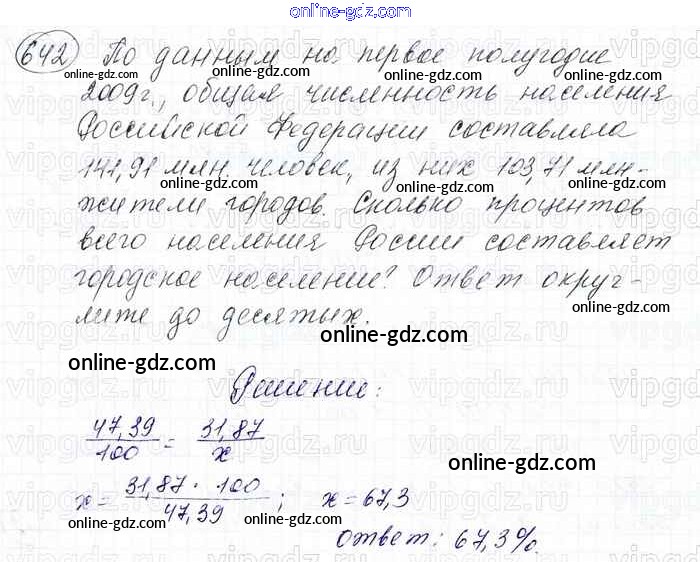 online-gdz.com
642 По данным на первое полугодие
2009г., общая численность населения
Российской Федерации составляла
141,91 млн. человек, из них 103,71 млн-
жители городов. Сколько процентов
всего населения России составляет
городское население? Ответ округ-
лите до десятых.
Решение:
47,39/100 = 31,87/x
x = 31,87 · 100/47,39; x = 67,3
Ответ: 67,3%.
online-gdz.com
online-gdz.com
online-gdz.com
online-gdz.com
online-gdz.com
online-gdz.com
online-gdz.com
online-gdz.com
online-gdz.com
online-gdz.com
online-gdz.com
online-gdz.com
online-gdz.com